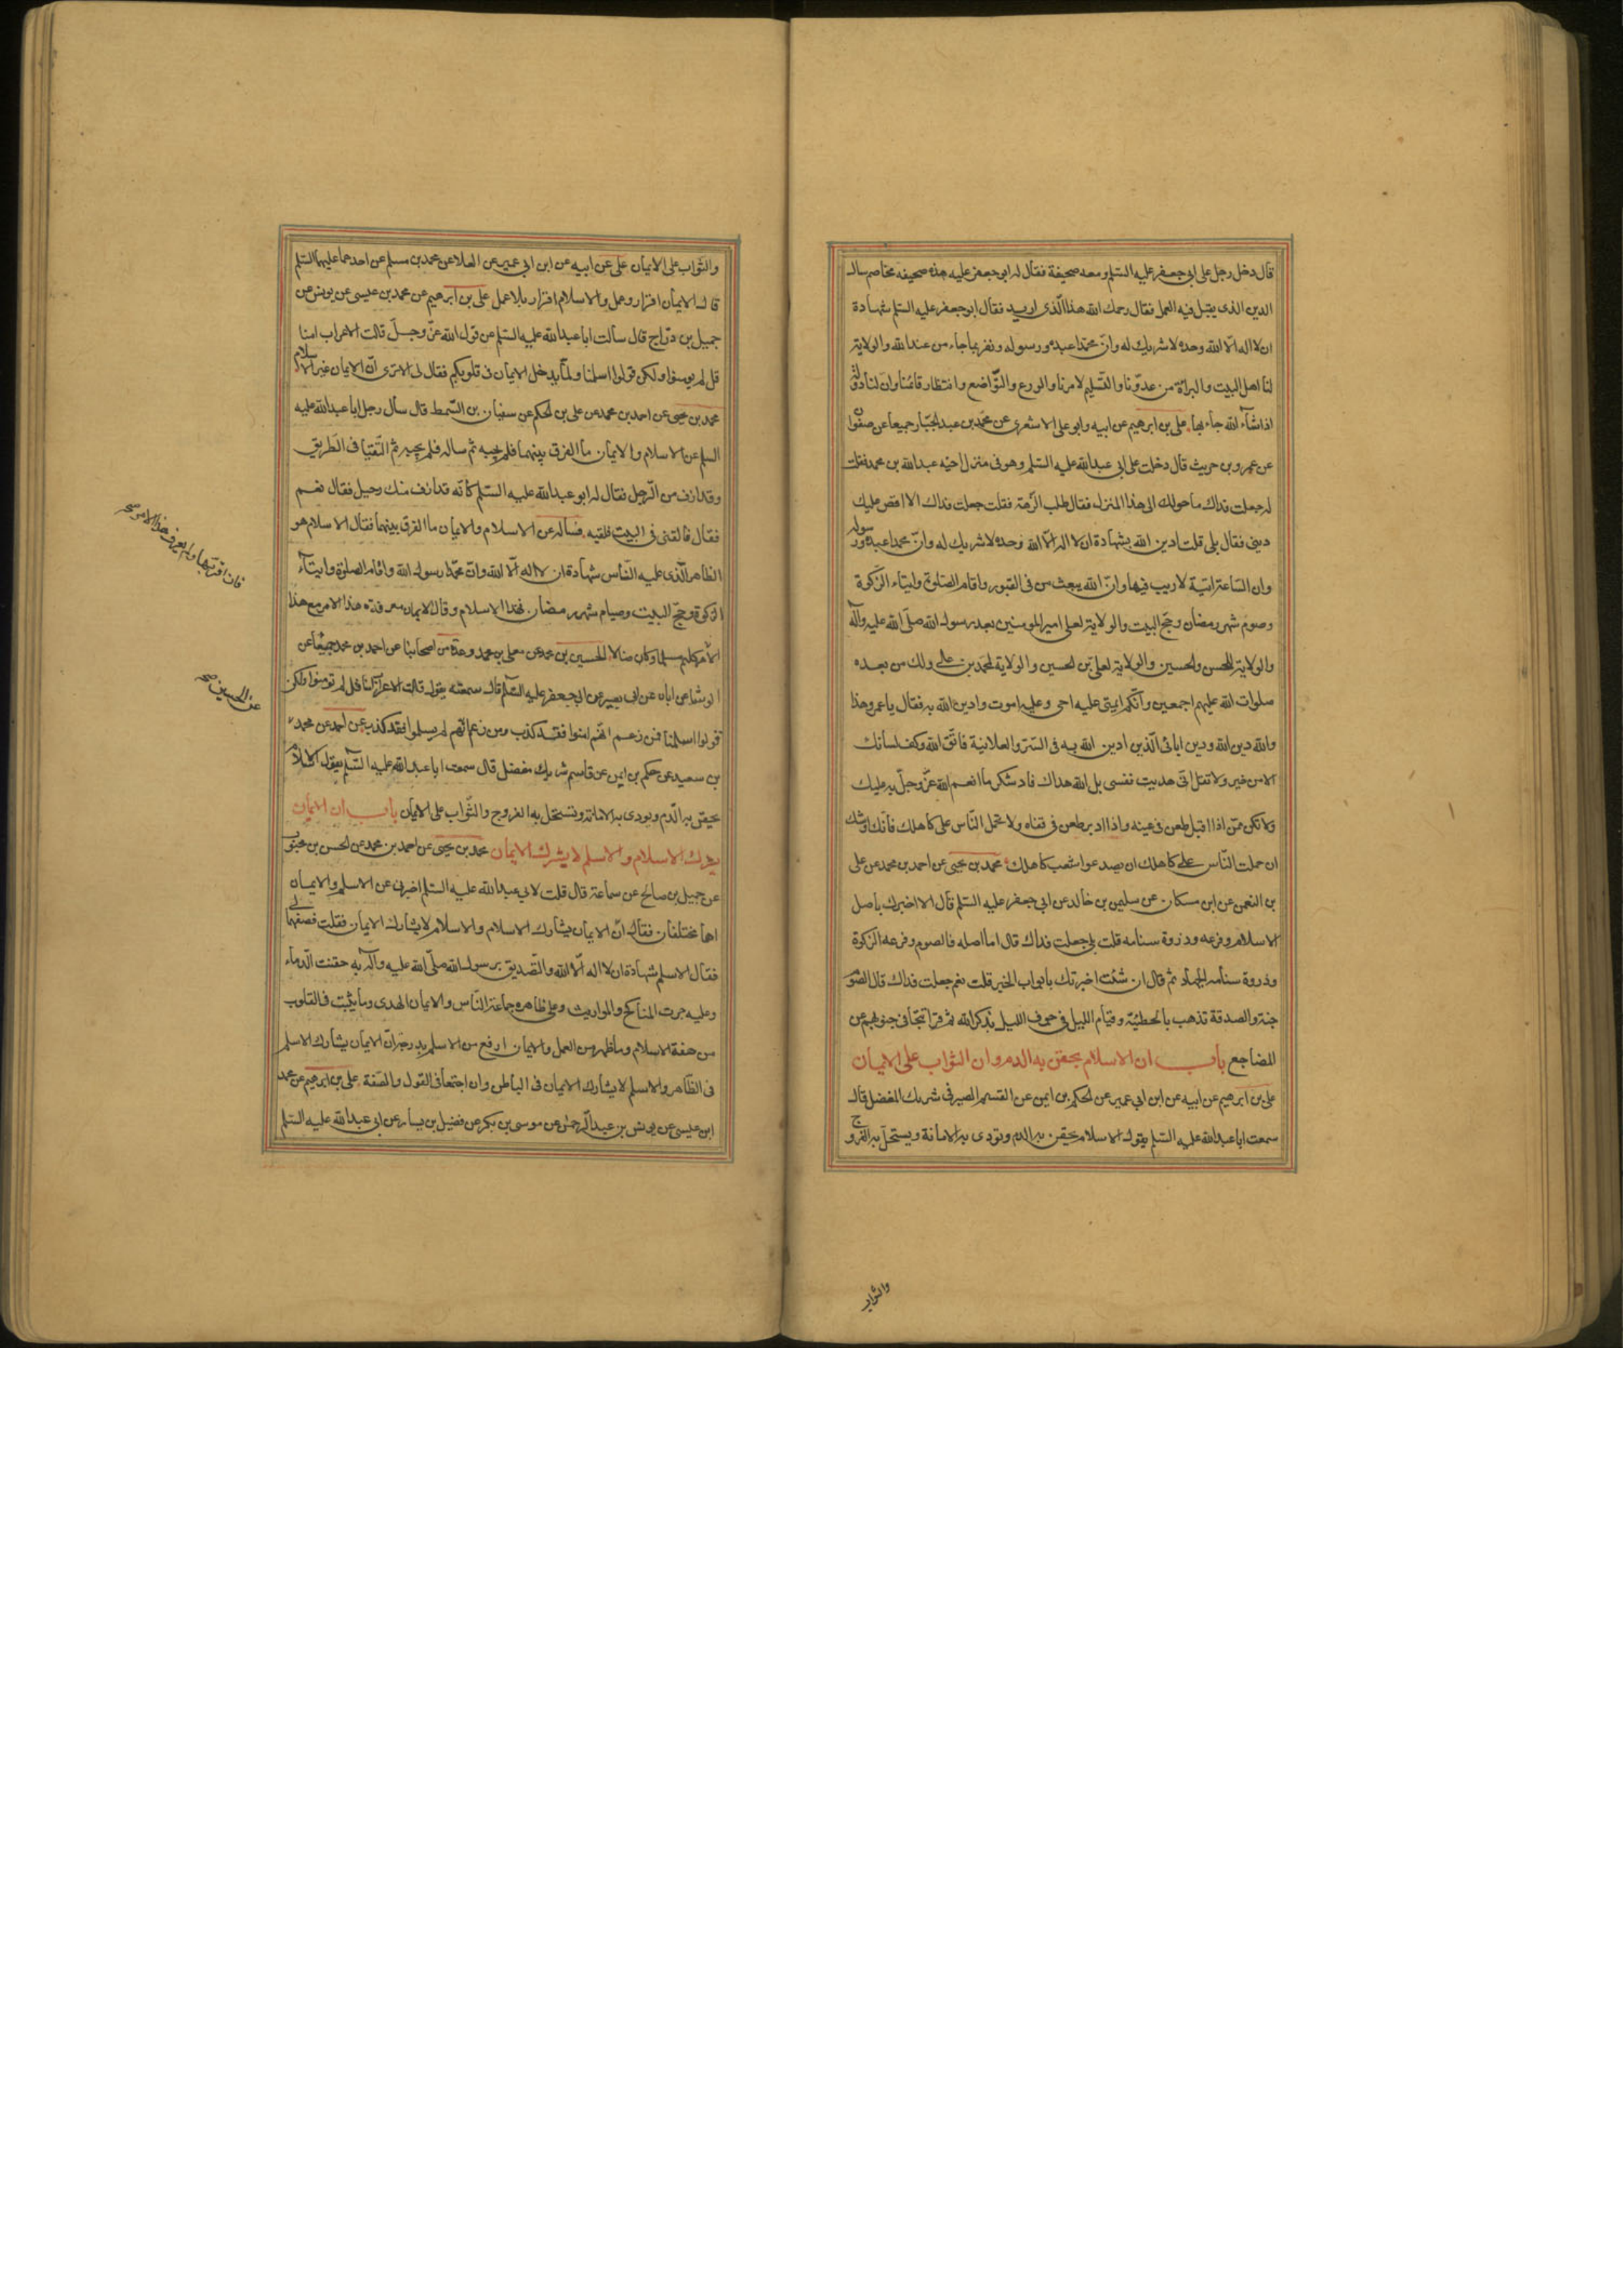 قال دخل رجل على ابي جعفر عليه السلم ومعه صحيفة فقال له ابو جعفر عليه هذه صحيفه مخاصم سال
الدين الذى يقبل فيه العمل فقال رحمك الله هذا الّذى اريد فقال ابو جعفر عليه السلم شهادة
ان لا اله الا الله وحده لا شريك له وانّ محمّدا عبده ورسوله وتقر بما جاء من عند الله والولاية
لنا اهل البيت والبراءة من عدوّنا والتّسليم لامرنا والورع والتّواضع وانتظار قائمنا وان لنا دولة
اذا شاء الله جاء بها علي بن ابرهيم عن ابيه وابو على الاشعرى عن محمّد بن عبد الجبّار جميعا عن صفوان
عن عمرو بن حريث قال دخلت على ابى عبد الله عليه السلم وهو فى منزل اخيه عبد الله بن محمد فقلت
له جعلت فداك ما حولك الى هذا المنزل فقال طلب النزهة فقلت جعلت فداك الا اقص عليك
دينى فقال بلى قلت ادين الله بشهادة ان لا اله الّا الله وحده لا شريك له وانّ محمدا عبده ورسوله
وان السّاعة اتية لا ريب فيها وانّ الله يبعث من فى القبور واقام الصّلوة وايتاء الزكوة
وصوم شهر رمضان وحجّ البيت والولاية لعلى امير المومنين بعد رسول الله صلّى الله عليه وآله
والولاية للحسن والحسين والولاية لعلى بن الحسين والولاية لمحمد بن على ولك من بعده
صلوات الله عليهم اجمعين وانّكم ايمتى عليه احى وعليه اموت وادين الله به فقال يا عمرو هذا
والله دين الله ودين ابائى الّذين ادين الله به فى السّرّ والعلانية فاتّق الله وكف لسانك
الا من خير ولا تقل انّى هديت نفسى بل الله هداك فاد شكر ما انعم الله عزّ وجلّ به عليك
ولا تكن ممّن اذا اقبل طعن فى عينه واذا ادبر طعن فى قفاه ولا تحمل النّاس على كاهلك فانّك اوشك
ان حملت النّاس على كاهلك ان يصدعوا شعب كاهلك محمد بن يحيى عن احمد بن محمد عن على
بن النعمن عن ابن مسكان عن سليمن بن خالد عن ابى جعفر عليه السلم قال الا اخبرك باصل
الاسلام وفرعه وذروة سنامه قلت بلى جعلت فداك قال اما اصله فالصوم وفرعه الزكوة
وذروة سنامه الجهاد ثم قال ان شئت اخبرتك بابواب الخير قلت نعم جعلت فداك قال الصوم
جنة والصدقة تذهب بالخطيئة وقيام الليل فى جوف الليل بذكر الله ثم قرا تتجافى جنوبهم عن
المضاجع باب ان الاسلام يحقن به الدم وان الثواب على الايمان
على بن ابرهيم عن ابيه عن ابن ابى عمير عن الحكم بن ايمن عن القسم الصيرفى شريك المفضل قال
سمعت ابا عبد الله عليه السلم يقول الاسلام يحقن به الدم وتودى به الامانة ويستحلّ به الفروج
والثواب
والثّواب على الايمان على عن ابيه عن ابن ابى عمير عن العلا عن محمد بن مسلم عن احدهما عليهما السلم
قال الايمان اقرار وعمل والاسلام اقرار بلا عمل على بن ابرهيم عن محمد بن عيسى عن يونس عن
جميل بن درّاج قال سالت ابا عبد الله عليه السلم عن قول الله عزّ وجلّ قالت الاعراب امنا
قل لم تومنوا ولكن قولوا اسلمنا ولمّا يدخل الايمان فى قلوبكم فقال لى الا ترى انّ الايمان غير الاسلام
محمد بن يحيى عن احمد بن محمد عن على بن الحكم عن سفيان بن السّمط قال سال رجل ابا عبد الله عليه
السلم عن الاسلام والايمان ما الفرق بينهما فلم يجبه ثم ساله فلم يجبه ثم التقيا فى الطريق
وقد ازف من الّرجل فقال له ابو عبد الله عليه السلم كانّه قد ازف منك رحيل فقال نعم
فقال فالقنى فى البيت فلقيه فساله عن الاسلام والايمان ما الفرق بينهما فقال الاسلام هو
الظاهر الّذى عليه النّاس شهادة ان لا اله الّا الله وانّ محمّدا رسول الله واقام الصلوة وايتآء
الزكوة وحجّ البيت وصيام شهر رمضان فهذا الاسلام وقال الايمان معرفة هذا الامر مع هذا
فان اقرّ بها ولم يعرف هذا الامر صح
الامر كان مسلما وكان ضالا الحسين بن محمد عن معلى بن محمد وعدة من اصحابنا عن احمد بن محمد جميعا عن
الوشا عن ابان عن ابى بصير عن ابى جعفر عليه السلم قال سمعته يقول قالت الاعراب امنا قل لم تومنوا ولكن
قولوا اسلمنا فمن زعم انّهم امنوا فقد كذب ومن زعم انّهم لم يسلموا فقد كذب عن احمد عن محمد
عن الحسين صح
بن سعيد عن حكم بن ايمن عن قاسم شريك مفضل قال سمعت ابا عبد الله عليه السّلم يقول الاسلام
يحقن به الدّم ويودى به الامانة وتستحلّ به الفروج والثّواب على الايمان باب ان الايمان
يشرك الاسلام والاسلم لا يشرك الايمان محمد بن يحيى عن احمد بن محمد عن الحسن بن محبوب
عن جميل بن صالح عن سماعة قال قلت لابى عبد الله عليه السلم اخبرنى عن الاسلم والايمان
اهما مختلفان فقال انّ الايمان يشارك الاسلام والاسلام لا يشارك الايمان فقلت فصفهما لى
فقال الاسلم شهادة ان لا اله الّا الله والتّصديق برسول الله صلّى الله عليه وآله به حقنت الّدماء
وعليه جرت المناكح والمواريث وعلى ظاهره جماعة النّاس والايمان الهدى وما يثبت فى القلوب
من صفة الاسلام وما ظهر من العمل والايمان ارفع من الاسلم بدرجة انّ الايمان يشارك الاسلم
فى الظّاهر والاسلم لا يشارك الايمان فى الباطن وان اجتمعا فى القول والصّفة على بن ابرهيم عن محمد
ابن عيسى عن يونس بن عبد الرحمن عن موسى بن بكر عن فضيل بن يسار عن ابى عبد الله عليه السلم